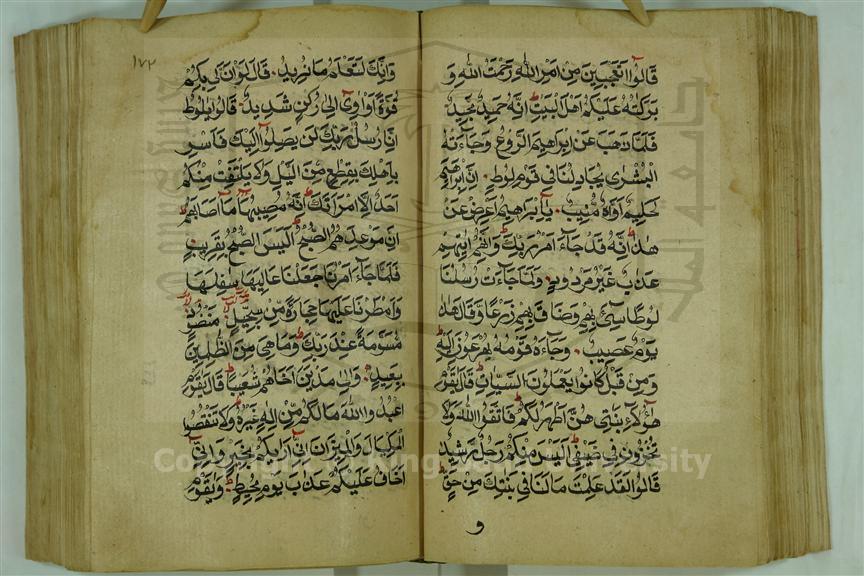 قَالُوا اَتَعْجَبِينَ مِنْ اَمْرِ اللهِ رَحْمَتُ اللهِ وَ
بَرَكٰتُهُ عَلَيْكُمْ اَهْلَ الْبَيْتِ اِنَّهُ حَمِيدٌ مَجِيدٌ
فَلَمَّا ذَهَبَ عَنْ اِبْرَاهِيمَ الرَّوْعُ وَجَآءَتْهُ
الْبُشْرٰى يُجَادِلُنَا فِي قَوْمِ لُوطٍ اِنَّ اِبْرَاهِيمَ
لَحَلِيمٌ اَوَّاهٌ مُنِيبٌ يَا اِبْرٰهِيمُ اَعْرِضْ عَنْ
هٰذَا اِنَّهُ قَدْ جَآءَ اَمْرُ رَبِّكَ وَاِنَّهُمْ اٰتِيهِمْ
عَذَابٌ غَيْرُ مَرْدُودٍ وَلَمَّا جَاءَتْ رُسُلُنَا
لُوطًا سِيءَ بِهِمْ وَضَاقَ بِهِمْ ذَرْعًا وَقَالَ هٰذَا
يَوْمٌ عَصِيبٌ وَجَآءَهُ قَوْمُهُ يُهْرَعُونَ اِلَيْهِ
وَمِنْ قَبْلُ كَانُوا يَعْمَلُونَ السَّيِّاٰتِ قَالَ يٰقَوْمِ
هٰٓؤُلَآءِ بَنَاتِي هُنَّ اَطْهَرُ لَكُمْ فَاتَّقُوا اللهَ وَلَا
تُخْزُونِ فِي ضَيْفِي اَلَيْسَ مِنْكُمْ رَجُلٌ رَشِيدٌ
قَالُوا لَقَدْ عَلِمْتَ مَا لَنَا فِي بَنٰتِكَ مِنْ حَقٍّ
و
١٧٢
وَاِنَّكَ لَتَعْلَمُ مَا نُرِيدُ قَالَ لَوْ اَنَّ لِي بِكُمْ
قُوَّةً اَوْ اٰوِي اِلٰى رُكْنٍ شَدِيدٍ قَالُوا يٰلُوطُ
اِنَّا رُسُلُ رَبِّكَ لَنْ يَصِلُوآ اِلَيْكَ فَاَسْرِ
بِاَهْلِكَ بِقِطْعٍ مِنَ الَّيْلِ وَلَا يَلْتَفِتْ مِنْكُمْ
اَحَدٌ اِلَّا امْرَاَتَكَ اِنَّهُ مُصِيبُهَا مَآ اَصَابَهُمْ
اِنَّ مَوْعِدَهُمُ الصُّبْحُ اَلَيْسَ الصُّبْحُ بِقَرِيبٍ
فَلَمَّا جَآءَ اَمْرُنَا جَعَلْنَا عَالِيَهَا سَافِلَهَا
وَاَمْطَرْنَا عَلَيْهَا حِجَارَةً مِنْ سِجِّيلٍ مَنْضُودٍ
مُسَوَّمَةً عِنْدَ رَبِّكَ وَمَا هِيَ مِنَ الظّٰلِمِينَ
بِبَعِيدٍ وَاِلٰى مَدْيَنَ اَخَاهُمْ شُعَيْبًا قَالَ يٰقَوْمِ
اعْبُدُوا اللهَ مَا لَكُمْ مِنْ اِلٰهٍ غَيْرُهُ وَلَا تَنْقُصُوا
الْمِكْيَالَ وَالْمِيزَانَ اِنِّي اَرٰيكُمْ بِخَيْرٍ وَاِنِّي
اَخَافُ عَلَيْكُمْ عَذَابَ يَوْمٍ مُحِيطٍ وَيٰقَوْمِ